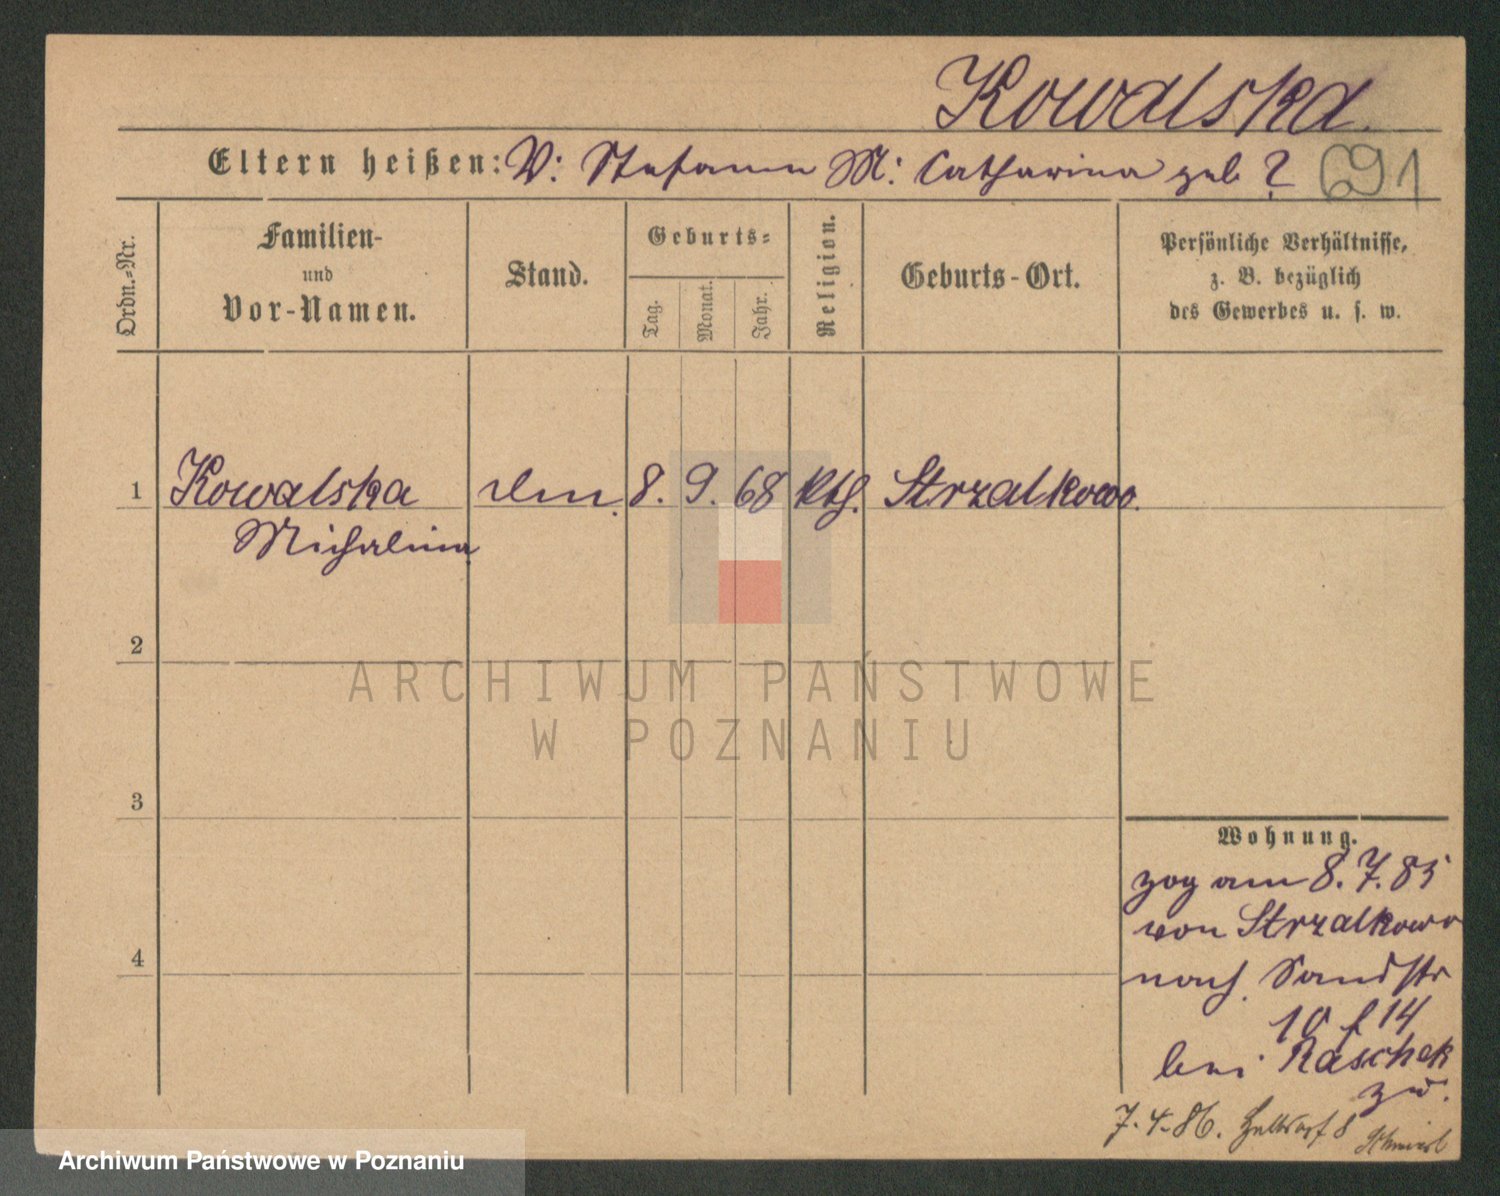 Kowalska.
Eltern heißen: V: Stefann M: Catharina geb ? 691
Ordn.-Nr.
Familien-
und
Vor-Namen.
Stand.
Geburts-
Tag.
Monat.
Jahr.
Religion.
Geburts-Ort.
Persönliche Verhältnisse,
z. B. bezüglich
des Gewerbes u. s. w.
1 Kowalska 8. 9. 68 kth. Strzalkowo.
Michalina
2
ARCHIWUM PAŃSTWOWE
W POZNANIU
3
Wohnung.
zog am 8.7.85
von Strzalkowo
4
nach Sandstr
10 f 14
bei Raschek
zu.
7.4.86. 8
Archiwum Państwowe w Poznaniu